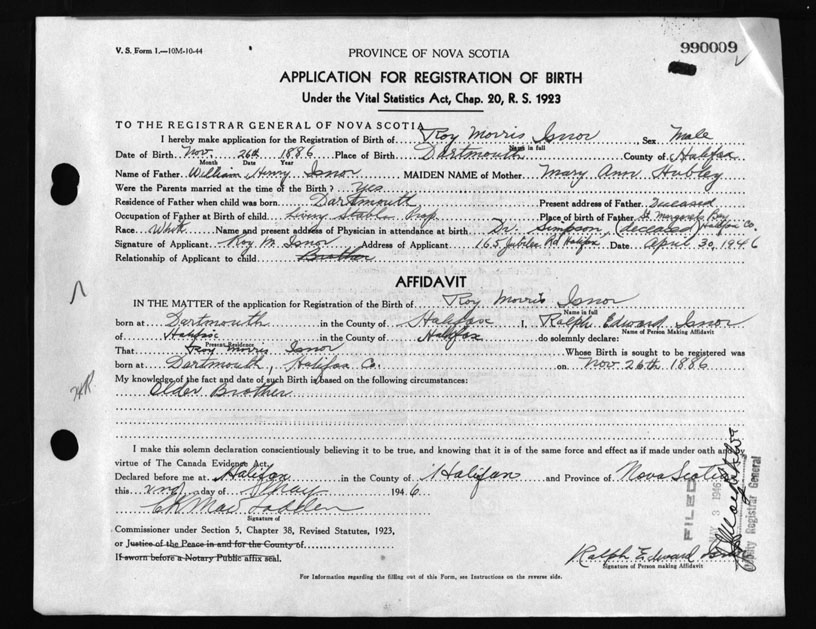 V. S. Form 1.—10M-10-44
990009
PROVINCE OF NOVA SCOTIA
APPLICATION FOR REGISTRATION OF BIRTH
Under the Vital Statistics Act, Chap. 20, R. S. 1923
TO THE REGISTRAR GENERAL OF NOVA SCOTIA
I hereby make application for the Registration of Birth of Roy Morris Isnor Sex Male
Name in full
Date of Birth Nov. 26th 1886 Place of Birth Dartmouth County of Halifax
Month Date Year
Name of Father William Henry Isnor MAIDEN NAME of Mother Mary Ann Hubley
Were the Parents married at the time of the Birth? Yes
Residence of Father when child was born Dartmouth Present address of Father Deceased
Occupation of Father at Birth of child Livery Stable Prop. Place of birth of Father St. Margarets Bay Halifax Co.
Race White Name and present address of Physician in attendance at birth Dr. Simpson, (deceased)
Signature of Applicant Roy M. Isnor Address of Applicant 165 Jubilee Rd Halifax Date April 30, 1946
Relationship of Applicant to child Brother
AFFIDAVIT
IN THE MATTER of the application for Registration of the Birth of Roy Morris Isnor
Name in full
born at Dartmouth in the County of Halifax I, Ralph Edward Isnor
Name of Person Making Affidavit
of Halifax in the County of Halifax do solemnly declare:
Present Residence
That Roy Morris Isnor Whose Birth is sought to be registered was
born at Dartmouth, Halifax Co. on Nov 26th 1886
My knowledge of the fact and date of such Birth is based on the following circumstances:
Older Brother
I make this solemn declaration conscientiously believing it to be true, and knowing that it is of the same force and effect as if made under oath and by
virtue of The Canada Evidence Act.
Declared before me at Halifax in the County of Halifax and Province of Nova Scotia
this 2nd day of May 1946
Signature of
Commissioner under Section 5, Chapter 38, Revised Statutes, 1923,
or Justice of the Peace in and for the County of
If sworn before a Notary Public affix seal.
Ralph Edward Isnor
Signature of Person making Affidavit
For Information regarding the filling out of this Form, see Instructions on the reverse side.
FILED
3 1946
Deputy Registrar General